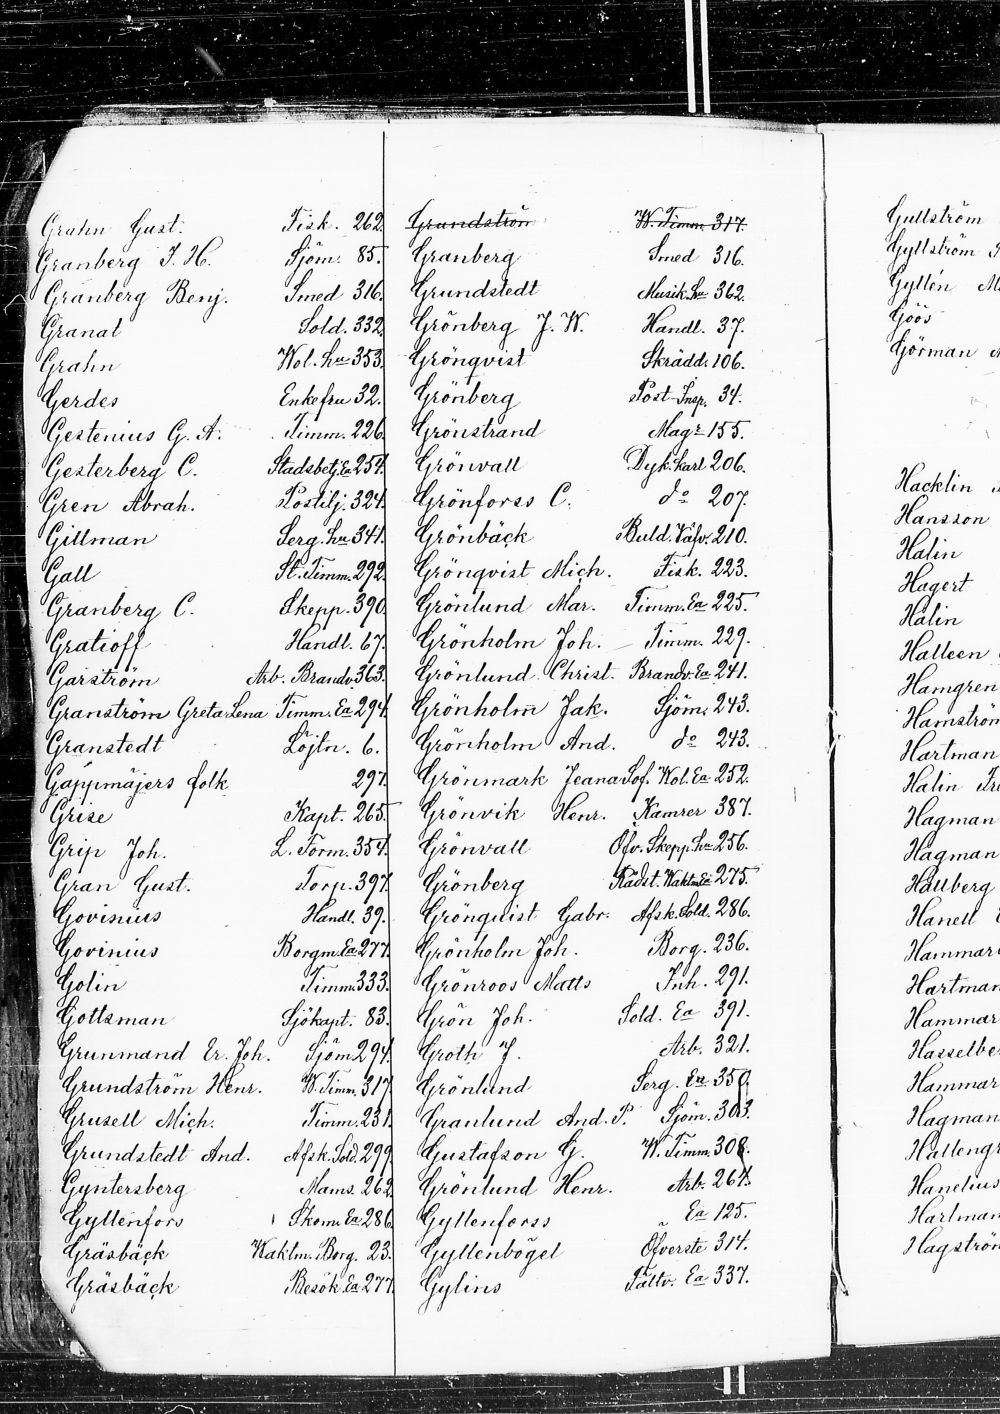 Grahn Gust. Fisk. 262.
Granberg J. H. Sjöm. 85.
Granberg Benj. Smed 316.
Granat Sold. 332.
Grahn Wol. hu 353.
Gerdes Enkefru 32.
Gestenius G. A. Timm. 226.
Gesterberg C. Stadsbetj. Ea 254.
Gren Abrah. Postilj. 324.
Gillman Serg. hu 341.
Gall St. Timm. 292.
Granberg C. Skepp. 390.
Gratioff Handl. 67.
Garström Arb. Brandv. 363.
Granström Greta Lena Timm. Ea 294.
Granstedt Löjtn. 6.
Gappmajers folk 297.
Grise Kapt. 265.
Grip Joh. L. Form. 354.
Gran Gust. Torp. 397.
Govinius Handl. 39.
Govinius Borgm. Ea 277.
Golin Timm. 333.
Gottsman Sjökapt. 83.
Grunmand Er. Joh. Sjöm. 294.
Grundström Henr. W. Timm. 317.
Grusell Mich. Timm. 231.
Grundstedt And. Afsk. Sold. 299.
Gyntersberg Mams. 262.
Gyllenfors Skom. Ea 286.
Gräsbäck Waktm. Borg. 23.
Gräsbäck Besök. Ea 277.
Grundström W. Timm. 317.
Granberg Smed 316.
Grundstedt Musik. hu 362.
Grönberg J. W. Handl. 37.
Grönqvist Skrädd. 106.
Grönberg Post-Insp. 34.
Grönstrand Magr 155.
Grönvall Dyk. karl 206.
Grönforss C. do 207.
Grönbäck Buld. Väfv. 210.
Grönqvist Mich. Fisk. 223.
Grönlund Mar. Timm. Ea 225.
Grönholm Joh. Timm. 229.
Grönlund Christ. Brandv. Ea 241.
Grönholm Jak. Sjöm. 243.
Grönholm And. do 243.
Grönmark Jeana Sof. Wol. Ea 252.
Grönvik Henr. Kamrer 387.
Grönvall Öfv. Skepp. hu 256.
Grönberg Rådst. Waktm. Ea 275.
Grönquist Gabr. Afsk. Sold. 286.
Grönholm Joh. Borg. 236.
Grönroos Matts Inh. 291.
Grön Joh. Sold. Ea 391.
Groth J. Arb. 321.
Grönlund Serg. En 350.
Granlund And. P. Sjöm. 303.
Gustafson G. W. Timm. 308.
Grönlund Henr. Arb. 267.
Gyllenforss Ea 125.
Gyllenbögel Öfverste 314.
Gylins Fältv. Ea 337.
Gullström
Gyllström
Gyllén
Göös
Görman
Hacklin
Hansson
Halin
Hagert
Halin
Halleen
Hamgren
Hamström
Hartman
Halin
Hagman
Hagman
Hallberg
Hanell
Hammar
Hartman
Hammar
Hasselbe
Hammar
Hagman
Hallengr
Hanelius
Hartman
Hagström